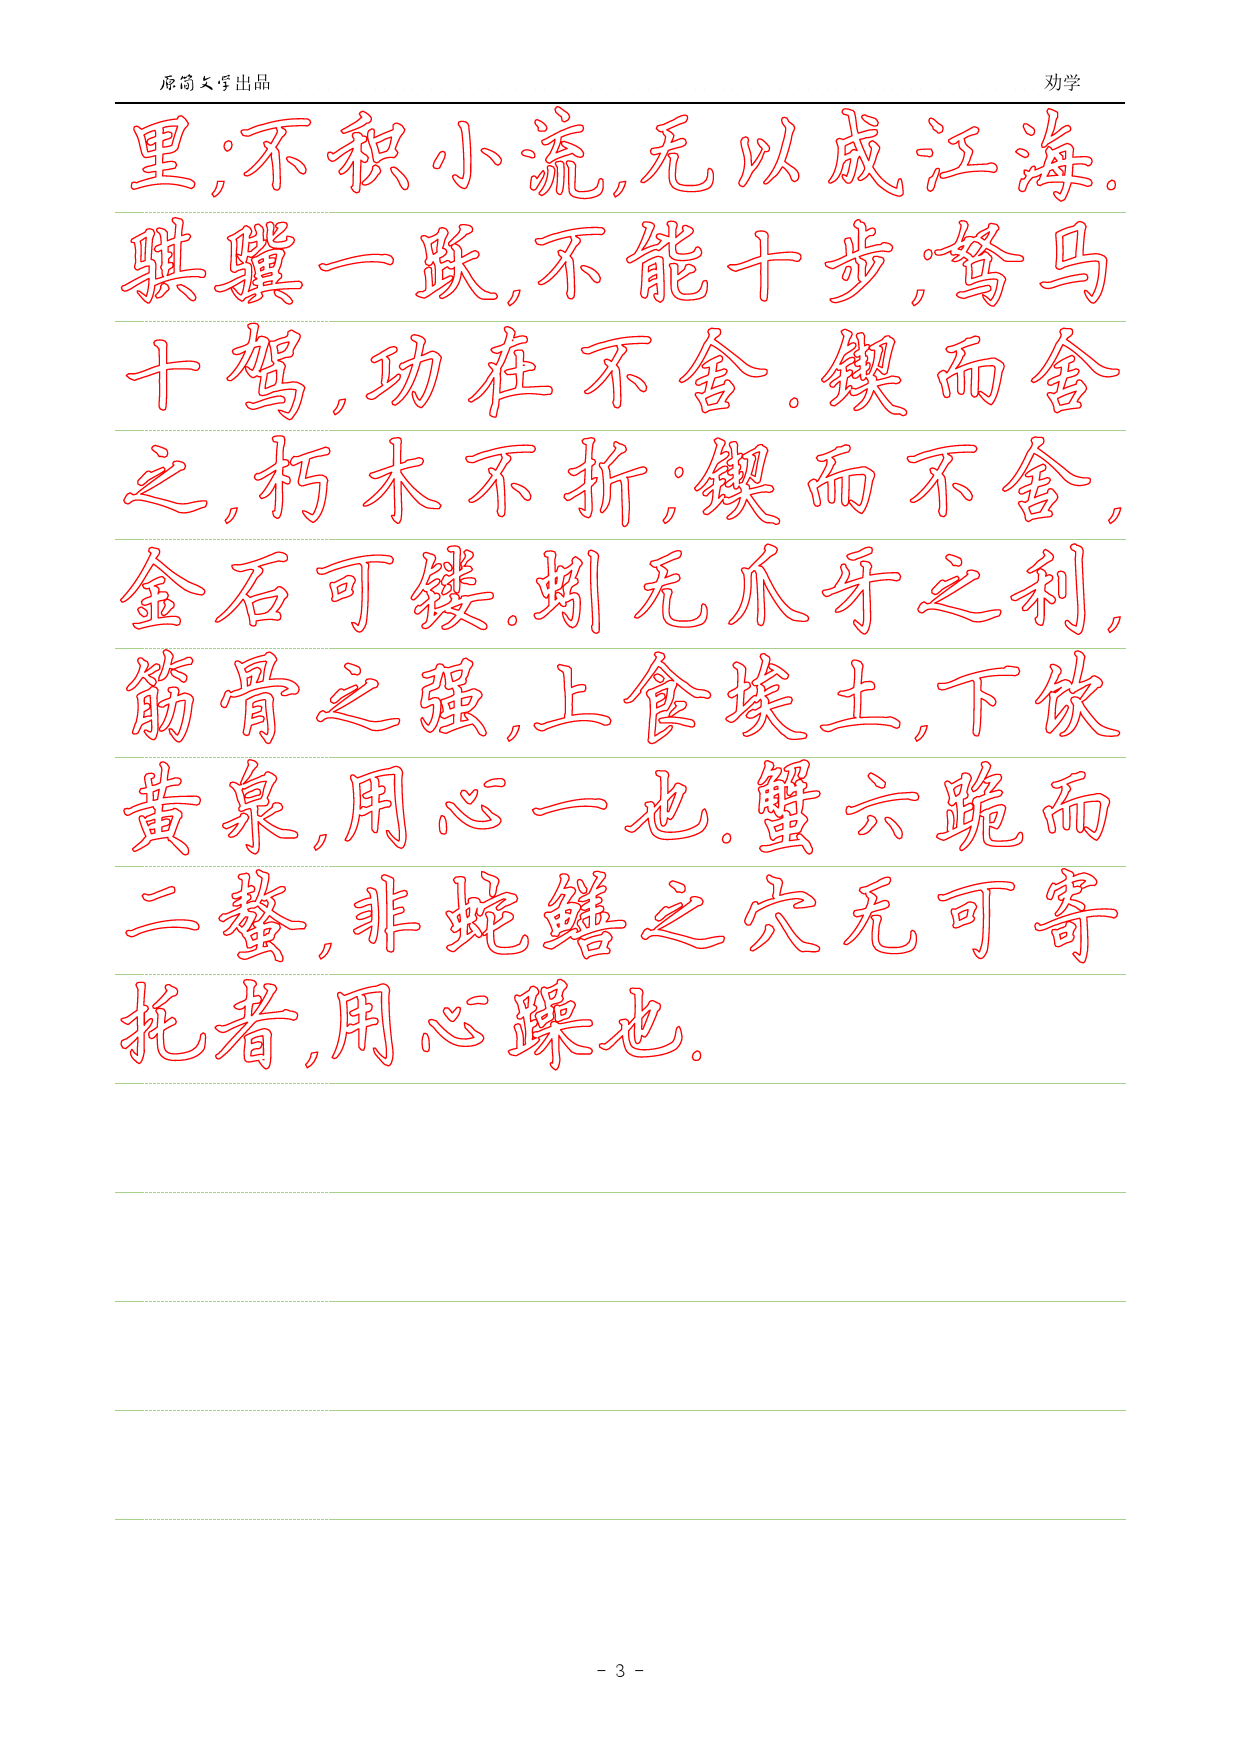 原简文学出品 劝学
里;不积小流,无以成江海.
骐骥一跃,不能十步;驽马
十驾,功在不舍.锲而舍
之,朽木不折;锲而不舍,
金石可镂.蚓无爪牙之利,
筋骨之强,上食埃土,下饮
黄泉,用心一也.蟹六跪而
二螯,非蛇鳝之穴无可寄
托者,用心躁也.
- 3 -